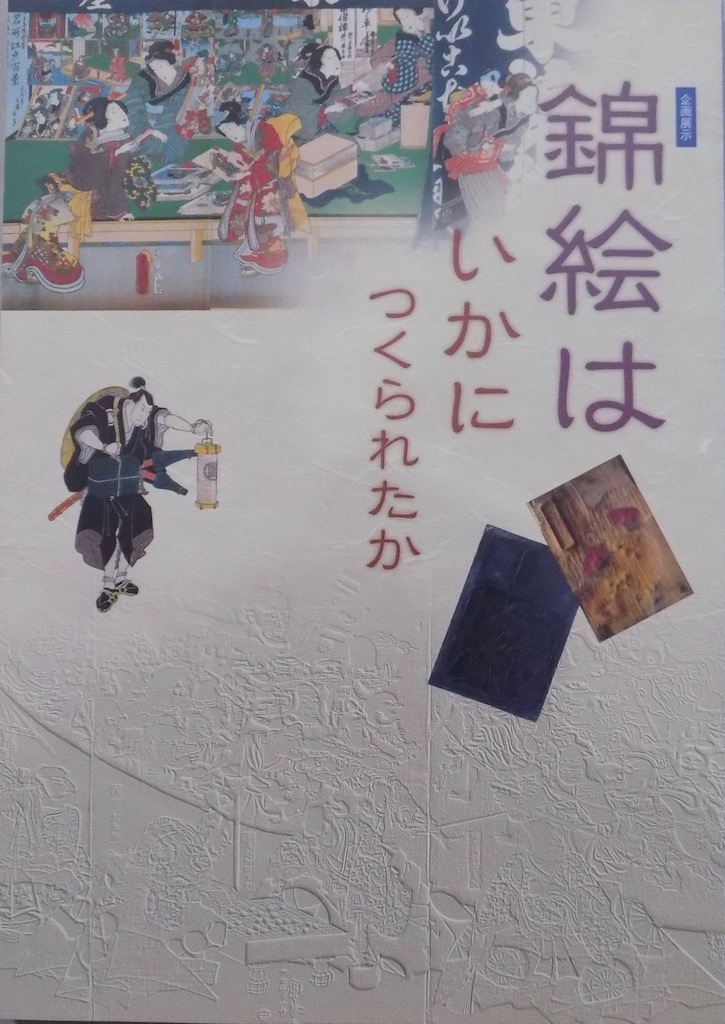 企画展示
錦絵は
いかに
つくられたか